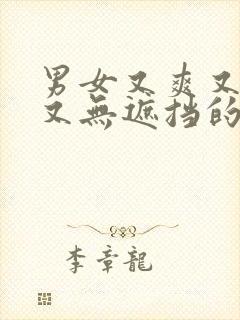 男女又爽又
又無遮挡的
李章龍